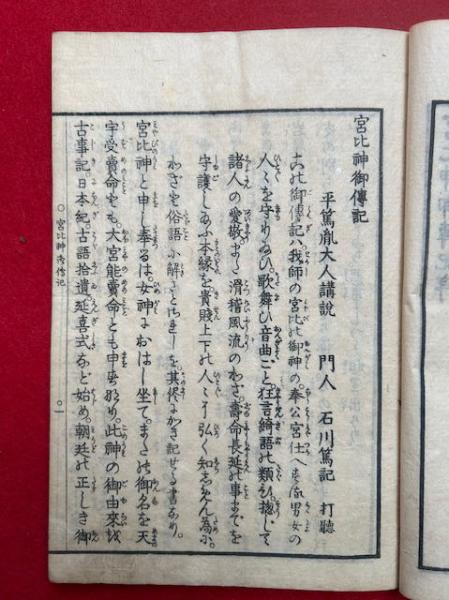 宮比神御傳記
平篤胤大人講説　門人　石川篤記　打聽
古の御傳記ハ。我師の宮比の御神の。奉公宮仕へする男女の
人々を守りゐひ。歌舞ひ音曲ごと。狂言綺語の類ひ。惣じて
諸人の愛敬。また滑稽風流のわざ。壽命長延の事までを
守護しゐふ本縁を。貴賤上下の人々に弘く知しめん為に。
わざと俗語に解さとされしを。其儘にかき記せる書なり。
宮比神と申し奉るは。女神におはし坐て。またの御名を天
宇受賣命とも。大宮能賣命とも申せり。此神の御由來は
古事記。日本紀。古語拾遺。延喜式など始め。朝廷の正しき御
宮比神御傳記